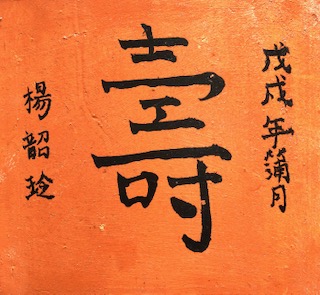 戊戌年蒲月
壽
楊韶玲